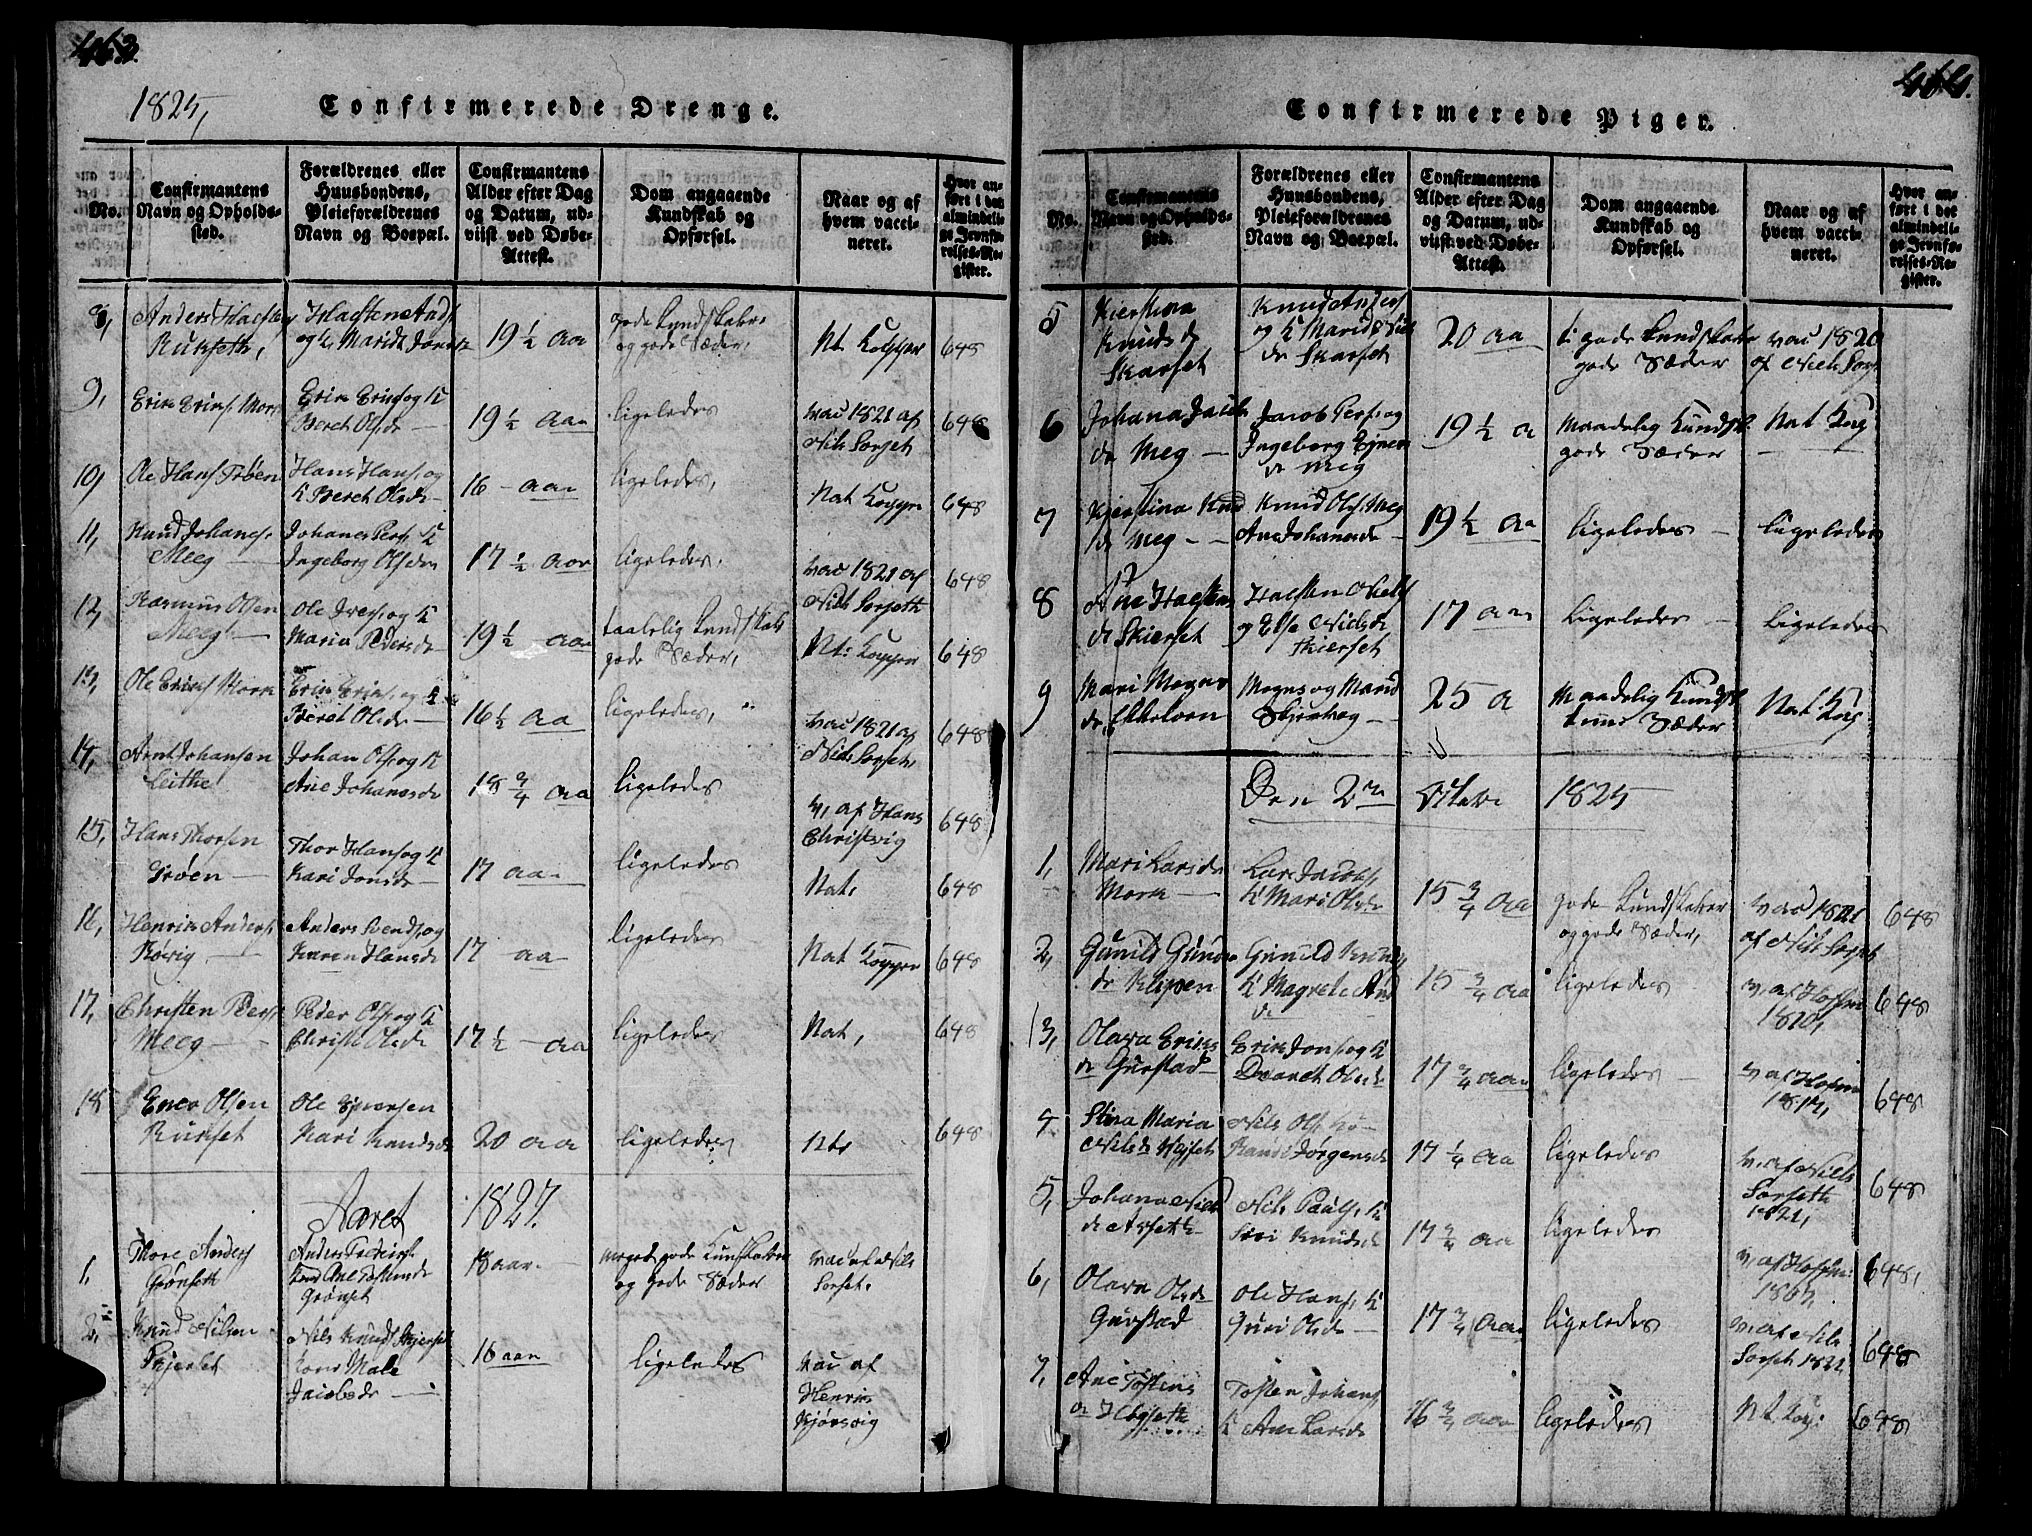 463.
1825,
Confirmerede Drenge.
No.
Confirmantens
Navn og Opholds-
sted.
Forældrenes eller
Huusbondens,
Pleieforældrenes
Navn og Boepæl.
Confirmantens
Alder efter Dag
og Datum, ud-
viist ved Døbe-
Attest.
Dom angaaende
Kundskab og
Opførsel.
Naar og af
hvem vacci-
neret.
Hvor an-
ført i det
almindeli-
ge Jevnfø-
relses-Re-
gister.
Anders
19 1/2 aa
gode Kundskaber
og gode Sæder,
Nt. Kopper
645
9,
Erik Eriks. Mork
Erik Eriks. og K
Beret Olsdr
19 1/2 aar
ligeledes
vac 1821 af
Nils Sorset
648
10,
Ole Hans. Trøen
Hans Hans. og
K Beret Olsdr
16 - aar
ligeledes,
Nat Kopper
648
11,
Knud Johanes.
Meeg
Johanes Pers. K
Ingeborg Olsdr
17 1/2 aar
ligeledes,
vac 1821 af
Nils Sorseth
648
12,
Rasmus Olsen
Meeg
Ole Ivers. og K
Maria Pedersdr
19 1/2 aar
taalelig Kundskab
gode Sæder,
Nt: Kopper
648
13,
Ole Eriks Mork
Erik Eriks. og K
Beret Olsdr
16 1/2 aa
ligeledes,
vac 1821 af
Nils Sorset,
648
14,
Arnt Johansen
Leithe
Johan Ols. og K
Ane Johansdr
18 3/4 aa
ligeledes
v, af Hans
Christvig
648
15,
Hans Thorsen
Trøen
Thor Hans. og K
Kari Jonsdr
17 aar
ligeledes
Nat,
648
16,
Henrik Anders.
Røvig
Anders Svends. og
Karen Hansdr
17 aa
ligeledes
Nat Kopper
648
17,
Christen Peders.
Meeg
Peder Ols. og K
Christi Olsdr
17 1/2 aa
ligeledes
Nat,
648
18
Olsen
Runset
Ole Iversen
Mari Knudsdr
20 aa
ligeledes
Nt,
648
Aaret 1827.
1,
Thore Anders
Grønseth
Grønset
18 aar
meget gode Kundskaber
og gode Sæder
vac af Nils
Sorset,
2,
Knud Nilsen
Skjerset
Nils Knuds. Skjerset
Kone Male
Jacobsdr
16 aar
ligeledes
vac af
Henrik
Bjørsvig
464.
Confirmerede Piger.
No.
Confirmantens
Navn og Opholds-
sted.
Forældrenes eller
Huusbondens,
Pleieforældrenes
Navn og Boepæl.
Confirmantens
Alder efter Dag
og Datum, ud-
viist ved Døbe-
Attest.
Dom angaaende
Kundskab og
Opførsel.
Naar og af
hvem vacci-
neret.
Hvor an-
ført i det
almindeli-
ge Jevnfø-
relses-Re-
gister.
5
Kierstina
Knudsdr
Skarset
Knud Anders
og K Marid Nils
dr Skarset
20 aa
gode Kundskaber
gode Sæder
vac 1820
af Nils Sors.
6
Johana Jacobs
dr Meg
Jacob Pers. og
Ingeborg Ejners
dr Meg
19 1/2 a
Maadelig Kundsk.
gode Sæder
Nat Kop.
7
Kjerstina Knud
dr Meg
Knud Ols. Meg
Ane Johansdr
19 1/2 aa
ligeledes
ligeledes
8
Ane Haestens
dr Skierset
Haesten Niels
og Else Nielsdr
Skierset
17 aar
ligeledes
ligeledes
9
Mari Magns
dr Ekkeloen
Magns og Marid
25 a
Maadelig Kundsk.
Sæder
Nat Kop.
Den 2den Octobr 1825
1,
Mari Larsdr
Mork
Lars Jacobs.
K Mari Olsdr
15 3/4 aa
gode Kundskaber
og gode Sæder,
vac 1821
af Nils Sorset
648
2,
Gunild Gunders
dr Klipen
K Magrete And
dr
15 3/4 aa
ligeledes
v, af Hoffm
1810,
648
3,
Olava Eriks
dr Gurstad
Erik Jons. og K
Olsdr
17 3/4 aar
ligeledes
v af Hofm
1817,
648
4
Stina Maria
Nils Ols. Kø-
Randi Jørgensdr
17 1/4 aa
ligeledes
v. af Nils
Sorseth
1821,
648
5,
Johana Niels
dr Aarseth
Nils Pauls. K
Siri Knudsdr
17 3/4 aa
ligeledes
v, af Hoffm:
648,
6,
Olava Olsdr
Gurstad
Ole Hans. K
Guri Olsdr
17 3/4 aar
ligeledes
v. af Nils
Sorset 1822
648
7,
Ane Tostens
dr Høgseth
Tosten Johans
K Ane Larsdr
16 3/4 aar
ligeledes
Nt. Kop:
648